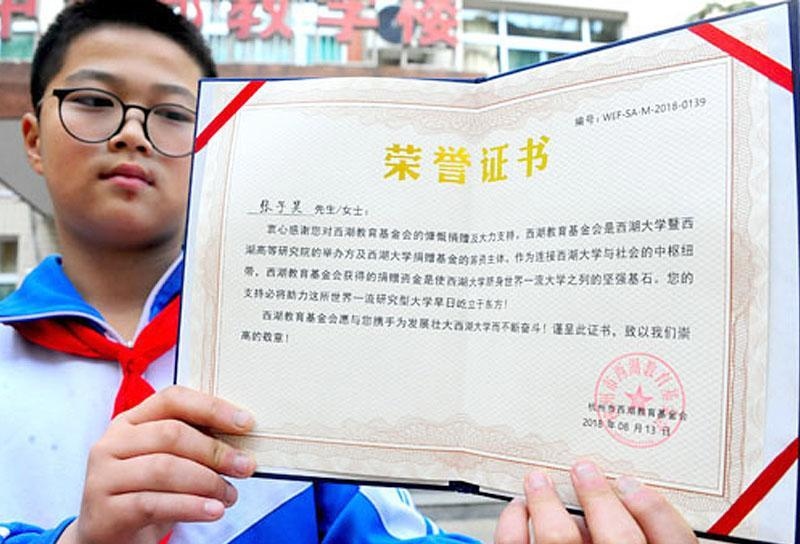 教学楼
编号：WEF-SA-M-2018-0139
荣誉证书
张子昊 先生/女士：
衷心感谢您对西湖教育基金会的慷慨捐赠及大力支持，西湖教育基金会是西湖大学暨西
湖高等研究院的举办方及西湖大学捐赠基金的筹资主体，作为连接西湖大学与社会的中枢纽
带，西湖教育基金会获得的捐赠资金是使西湖大学跻身世界一流大学之列的坚强基石。您的
支持必将助力这所世界一流研究型大学早日屹立于东方！
西湖教育基金会愿与您携手为发展壮大西湖大学而不断奋斗！谨呈此证书，致以我们崇
高的敬意！
杭州市西湖教育基金会
杭州市西湖教育基金会
2018 年 06 月 13 日